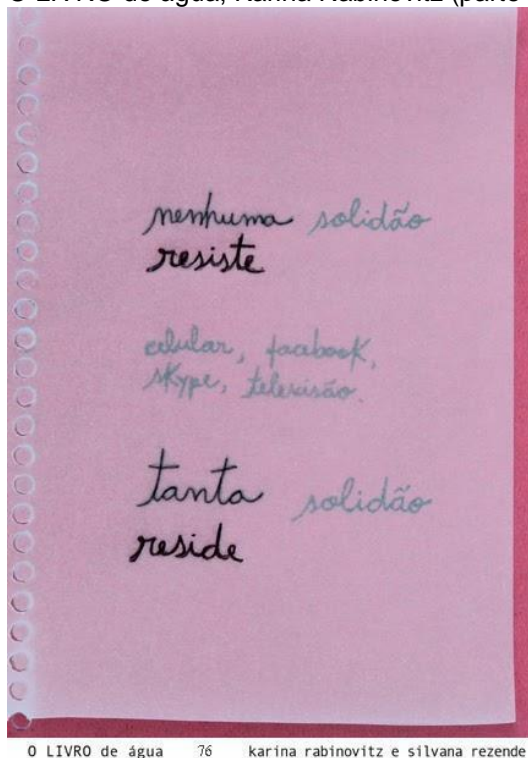 O LIVRO de água, Karina Rabinovitz (parte
nenhuma solidão
resiste
celular, facebook,
skype, televisão.
tanta solidão
reside
O LIVRO de água 76 karina rabinovitz e silvana rezende